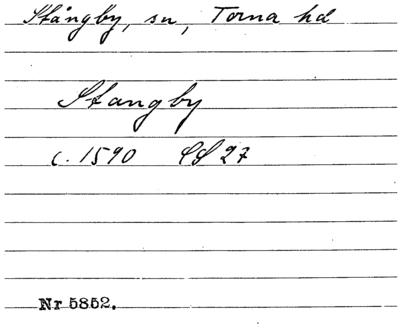 Stångby, sn, Torna hd
Stangby
c. 1590 SS 27
Nr 5852.